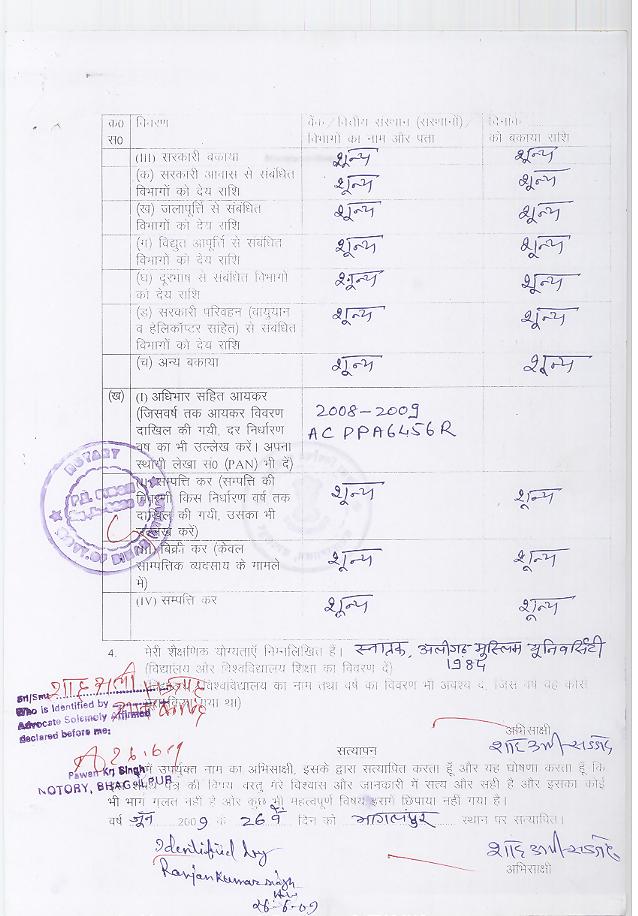 क्र० विवरण बैंक/वित्तीय संस्थान (संस्थानों)/ दिनांक ..........
स० विभागों का नाम और पता को बकाया राशि
(III) सरकारी बकाया शून्य शून्य
(क) सरकारी आवास से संबंधित शून्य शून्य
विभागों को देय राशि
(ख) जलापूर्त्ति से संबंधित शून्य शून्य
विभागों को देय राशि
(ग) विद्युत आपूर्त्ति से संबंधित शून्य शून्य
विभागों को देय राशि
(घ) दूरभाष से संबंधित विभागों शून्य शून्य
को देय राशि
(ड) सरकारी परिवहन (वायुयान शून्य शून्य
व हेलिकॉप्टर सहित) से संबंधित
विभागों को देय राशि
(च) अन्य बकाया शून्य शून्य
(ख) (I) अधिभार सहित आयकर 2008-2009
(जिसवर्ष तक आयकर विवरण ACDPA6456R
दाखिल की गयी, दर निर्धारण
वर्ष का भी उल्लेख करें। अपना
स्थायी लेखा स० (PAN) भी दें)
सम्पत्ति कर (सम्पत्ति की शून्य शून्य
किस निर्धारण वर्ष तक
दाखिल की गयी, उसका भी
उल्लेख करें)
(III) बिक्री कर (केवल शून्य शून्य
साम्पत्तिक व्यवसाय के मामले
में)
(IV) सम्पत्ति कर शून्य शून्य
NOTARY
4. मेरी शैक्षणिक योग्यताएँ निम्नलिखित हैं। स्नातक, अलीगढ़ मुस्लिम यूनिवर्सिटी
(विद्यालय और विश्वविद्यालय शिक्षा का विवरण दें) 1984
विश्वविद्यालय का नाम तथा वर्ष का विवरण भी अवश्य दें, जिस वर्ष वह कोर्स
किया गया था)
Sri/Smt शाह अली सज्जाद
Who is Identified by
Advocate Solemnly Affirmed
declared before me;
26.6.09
Pawan Kr. Singh
NOTORY, BHAGALPUR
शाह अली सज्जाद
अभिसाक्षी
सत्यापन
मैं उपर्युक्त नाम का अभिसाक्षी, इसके द्वारा सत्यापित करता हूँ और यह घोषणा करता हूँ कि
पत्र की विषय वस्तु मेरे विश्वास और जानकारी में सत्य और सही है और इसका कोई
भी भाग गलत नही है और कुछ भी महत्वपूर्ण विषय इसमें छिपाया नही गया है।
वर्ष जून 2009 के 26वें दिन को भागलपुर स्थान पर सत्यापित।
Identified by
Ranjan Kumar Singh
Adv
26-6-09
शाह अली सज्जाद
अभिसाक्षी